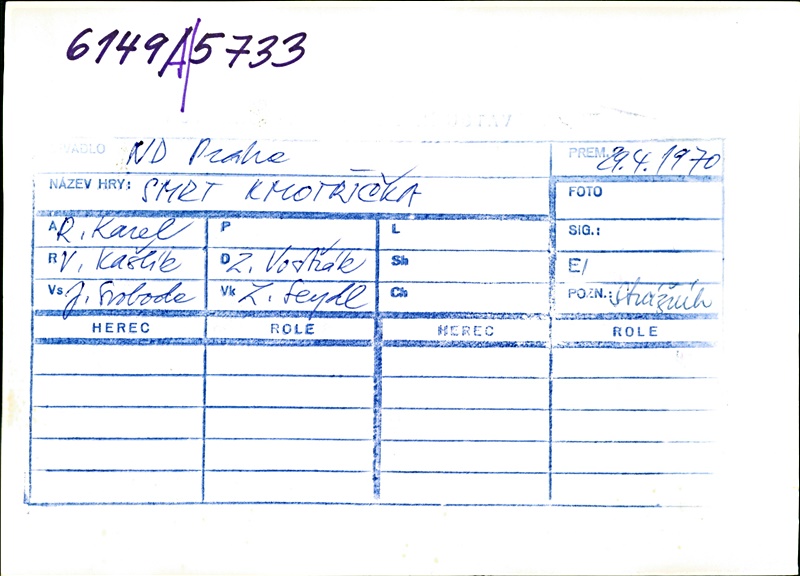 6149A/5733
DIVADLO ND Praha PREM. 29.4.1970
NÁZEV HRY: SMRT KMOTŘIČKA FOTO
A R. Karel P L SIG.:
R V. Kašlík D Z. Vostřák Sh E/
Vs J. Svoboda Vk Z. Seydl Ch POZN.: strážník
HEREC ROLE HEREC ROLE